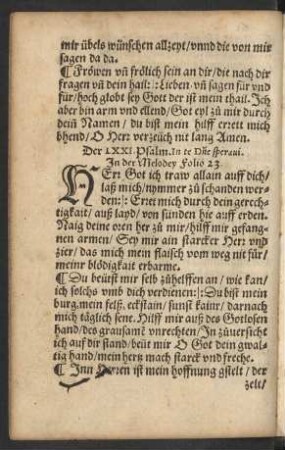 mir übels wünschen allzeyt/vnnd die von mir
sagen da da.
¶ Fröwen vñ frölich sein an dir/die nach dir
fragen vñ dein hail: ⁝: Lieben vñ sagen für vnd
für/hoch globt sey Gott der ist mein thail. Ich
aber bin arm vnd ellend/Got eyl zů mir durch
deiñ Namen/du bist mein hilff errett mich
bhend/O Herr verzeüch nit lang Amen.
Der LXXI. Psalm. In te Dñe speraui.
In der Melodey Folio 23
HErr Got ich traw allain auff dich/
laß mich/nymmer zů schanden wer-
den: ⁝: Erret mich durch dein gerech-
tigkait/auß layd/von sünden hie auff erden.
Naig deine oren her zů mir/hilff mir gefang-
nen armen/Sey mir ain starcker Herr vnd
zier/das mich mein flaisch vom weg nit für/
meinr blödigkait erbarme.
¶ Du beütst mir selb zühelffen an/wie kan/
ich solchs vmb dich verdienen: ⁝: Du bist mein
burg.mein felß. eckstain/sunst kainr/darnach
mich täglich sene. Hilff mir auß des Gotlosen
hand/des grausamē vnrechten/In zůuersicht
ich auf dir stand/beüt mir O Got dein gwal-
tig hand/mein hertz mach starck vnd freche.
¶ Inn Herren ist mein hoffnung gstelt/der
zelt/